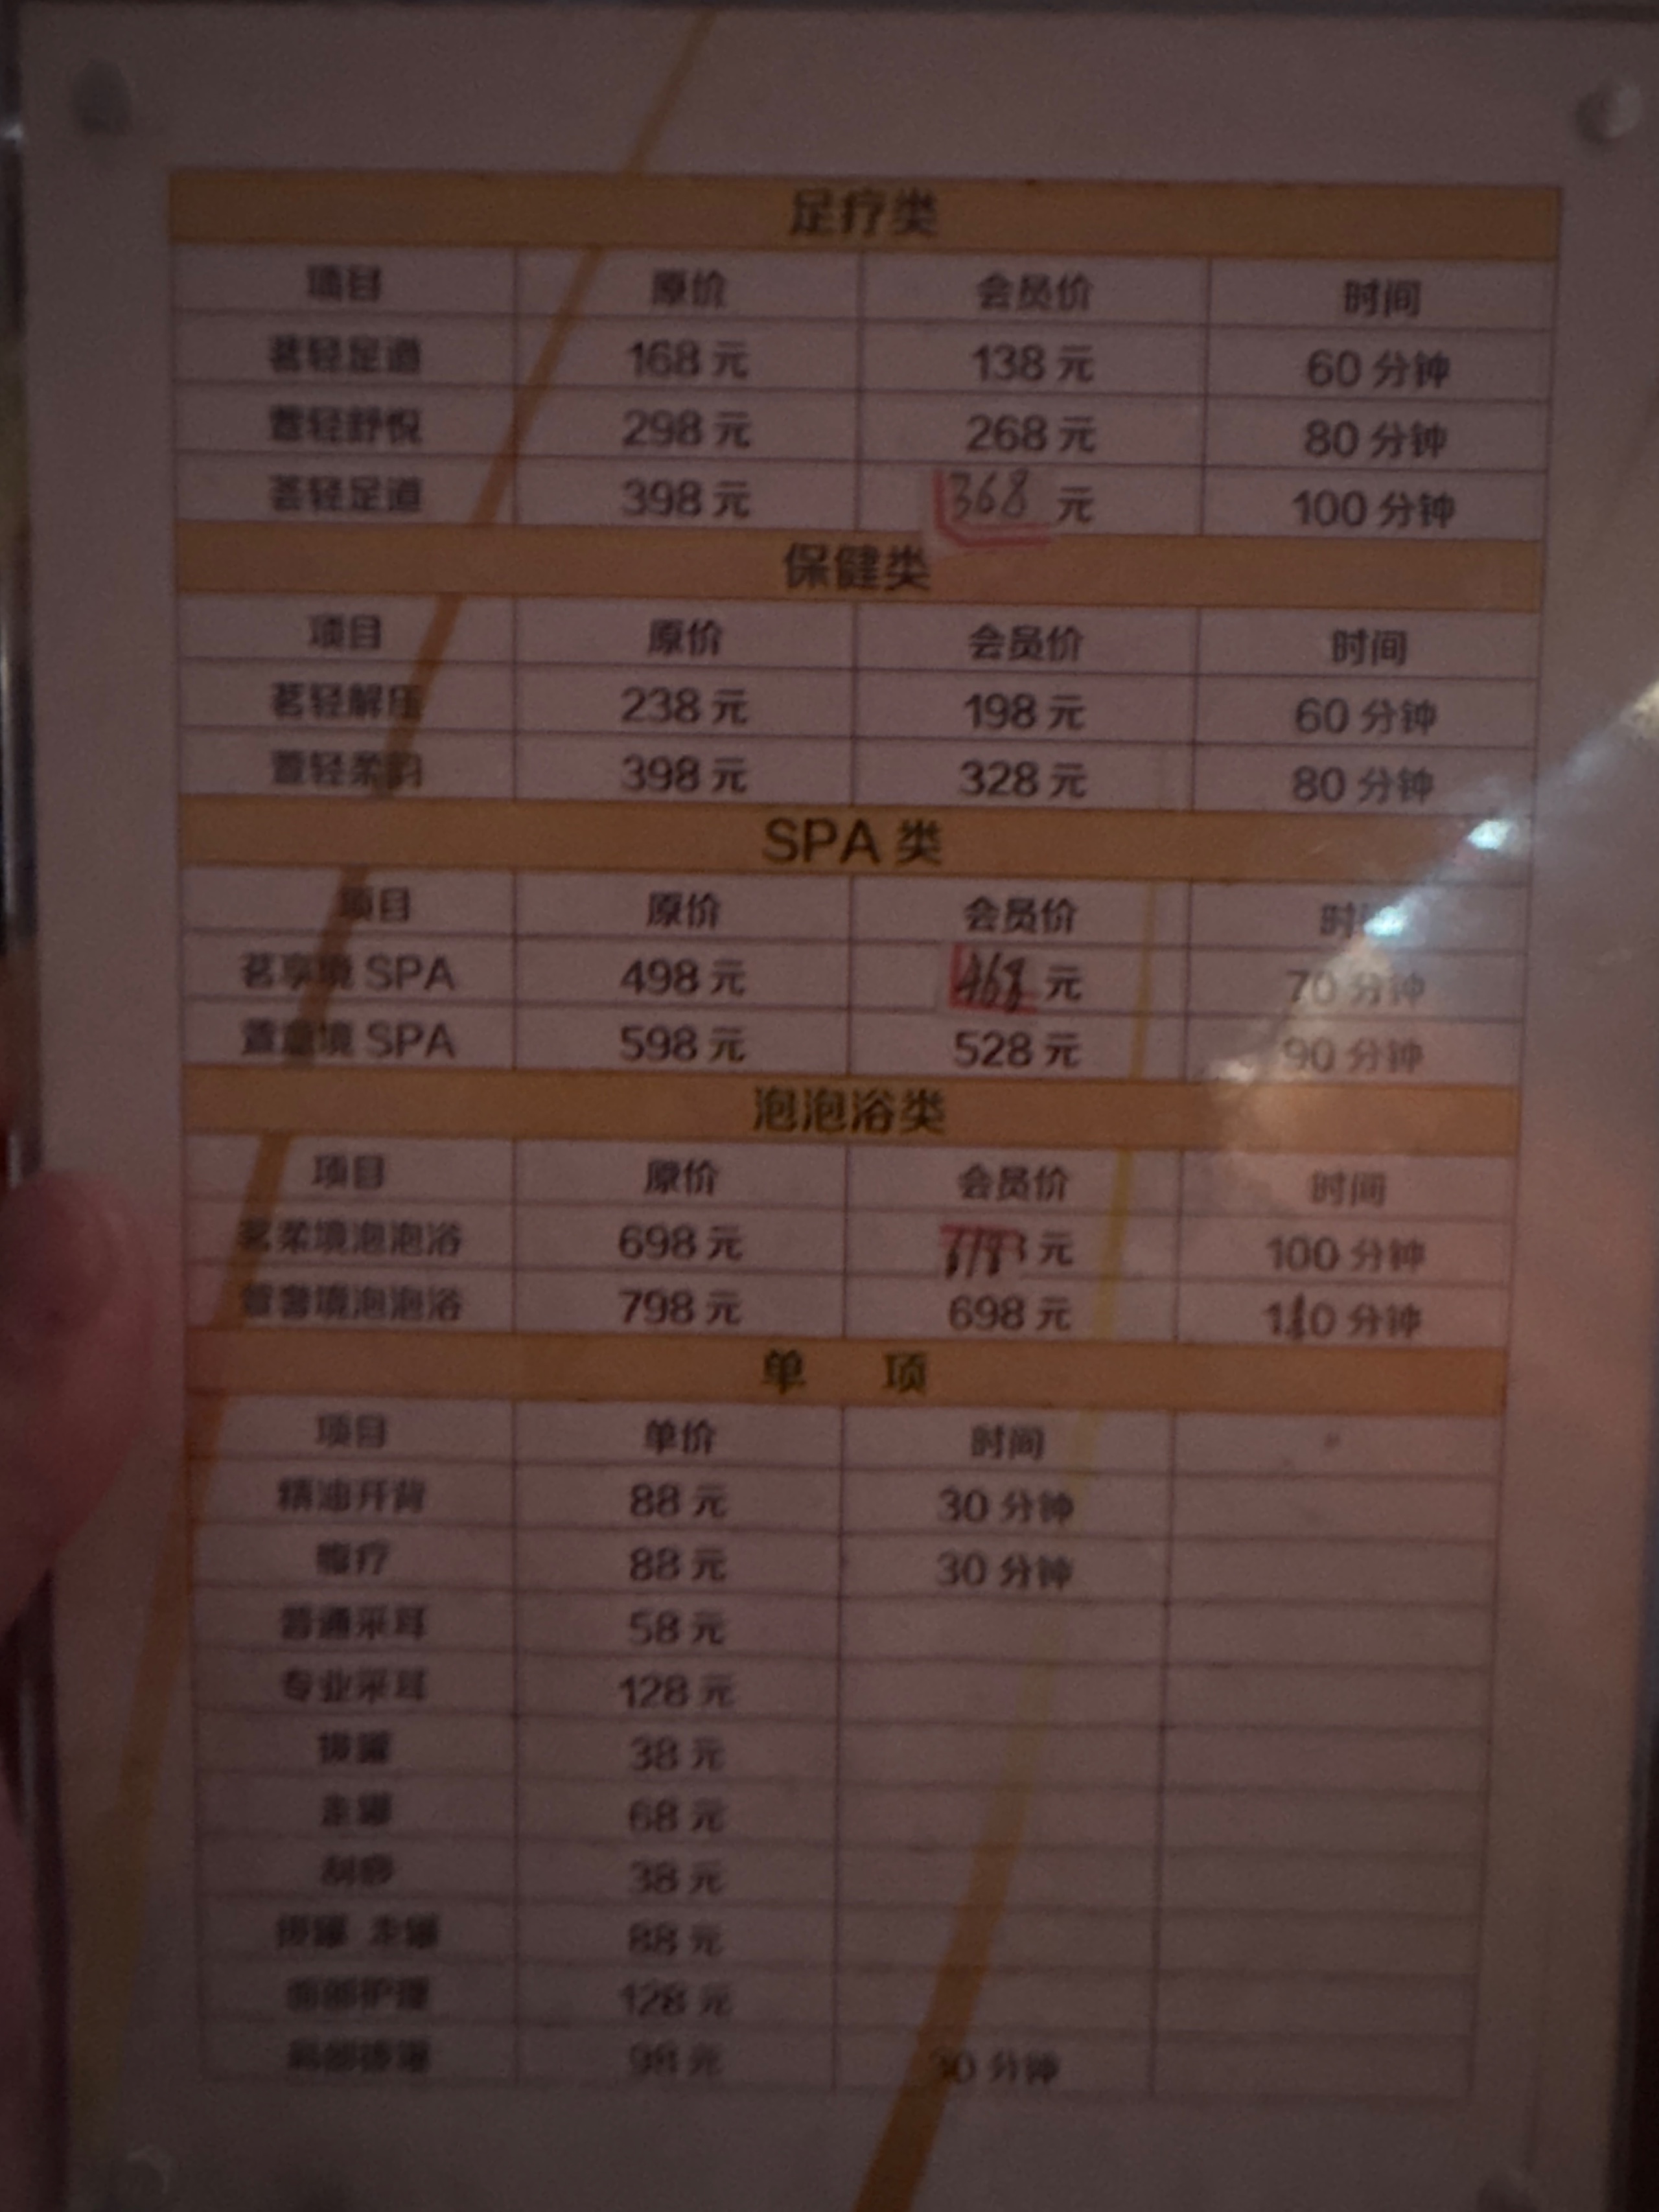 足疗类
项目 原价 会员价 时间
茗轻足道 168元 138元 60分钟
萱轻舒悦 298元 268元 80分钟
荟轻足道 398元 368元 100分钟
保健类
项目 原价 会员价 时间
茗轻解压 238元 198元 60分钟
萱轻柔韵 398元 328元 80分钟
SPA类
项目 原价 会员价 时间
茗享境SPA 498元 468元 70分钟
萱境SPA 598元 528元 90分钟
泡泡浴类
项目 原价 会员价 时间
茗柔境泡泡浴 698元 元 100分钟
萱奢境泡泡浴 798元 698元 110分钟
单 项
项目 单价 时间
精油开背 88元 30分钟
腹疗 88元 30分钟
普通采耳 58元
专业采耳 128元
拔罐 38元
走罐 68元
刮痧 38元
拔罐 走罐 88元
面部护理 128元
98元 30分钟